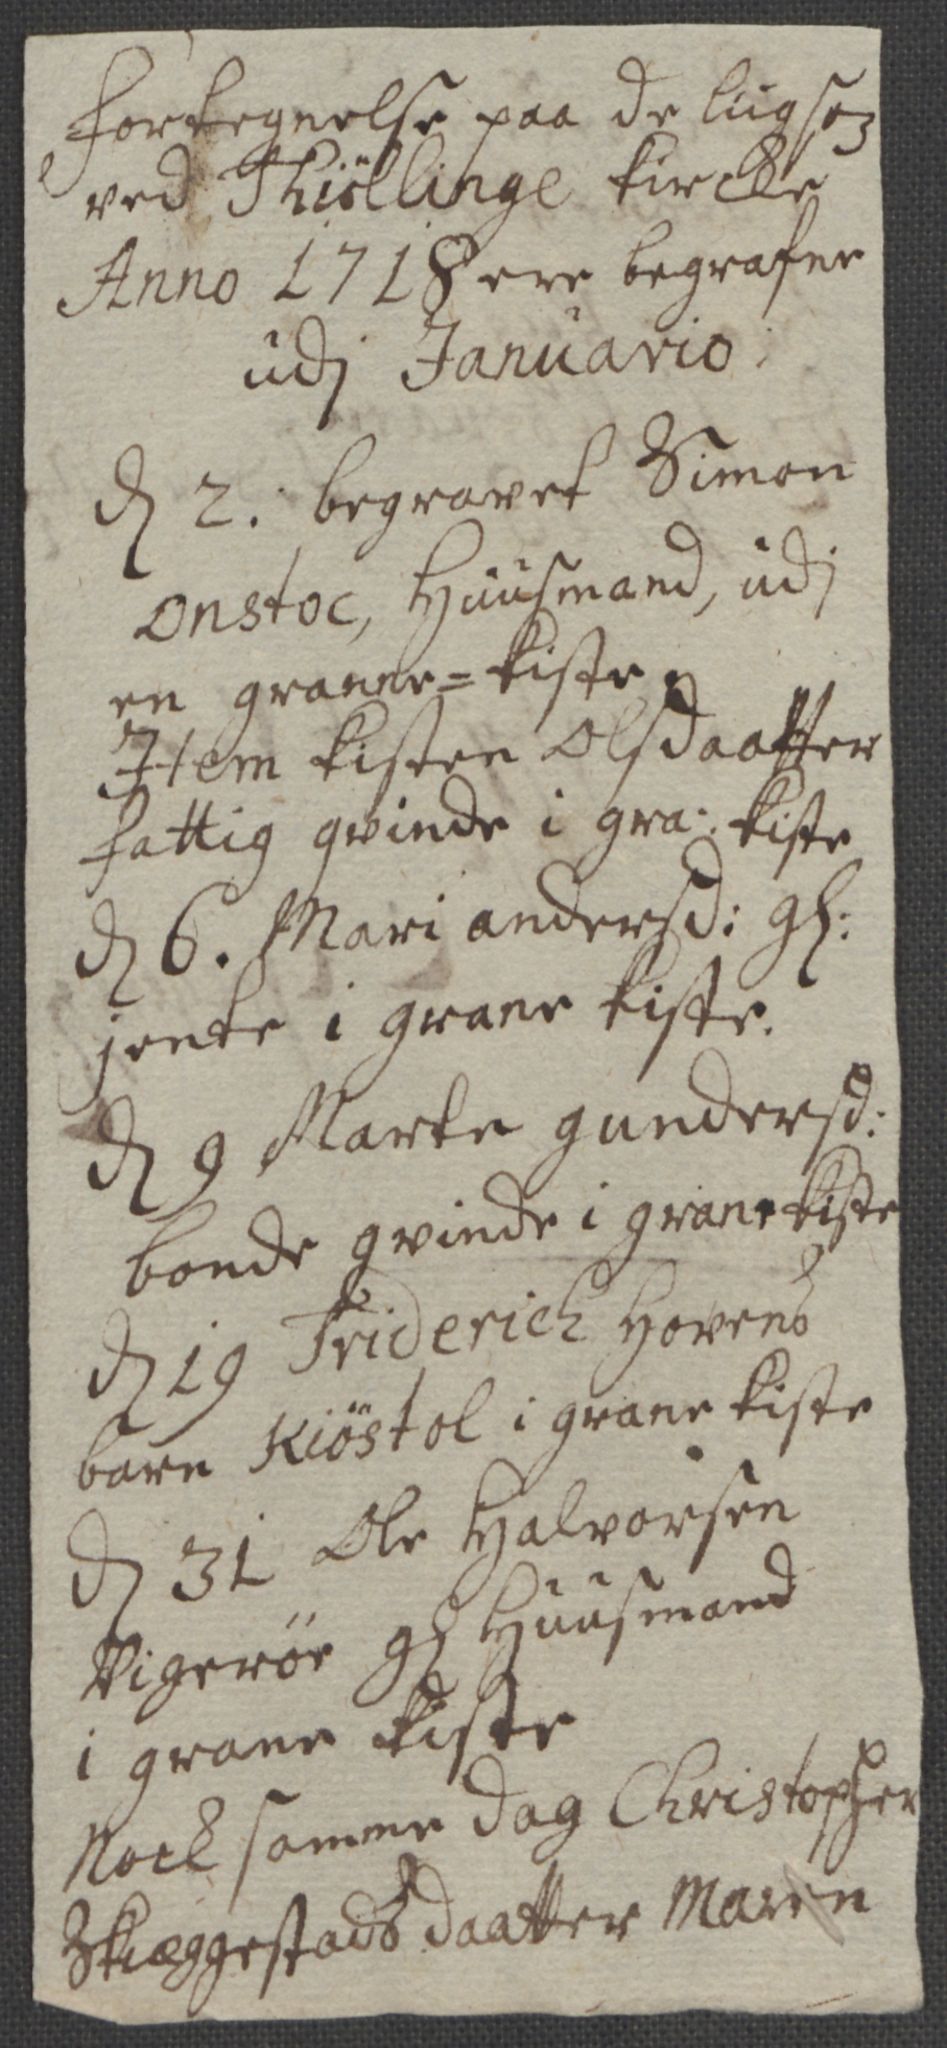 Fortegnelse paa de liig som
ved Thiöllinge kircke
Anno 1718 ere begrafne
udj Januario:
d 2. begravet Simon
Onstoc, Huusmand, udj
en granne=kiste
Item kisten Olsdaatter
fattig qvinde i gra: kiste
d 6. Mari andersd: gl:
jente i grane kiste.
d 9 Marte gundersd:
bonde qvinde i grane kiste
d 19 Friderich Hovens
barn Kiöstol i grane kiste
d 31 Ole Halvorsen
Vigeröe gl Huusmand
i grane kiste
Nock samme dag Christopher
Skiæggestads daatter Maren